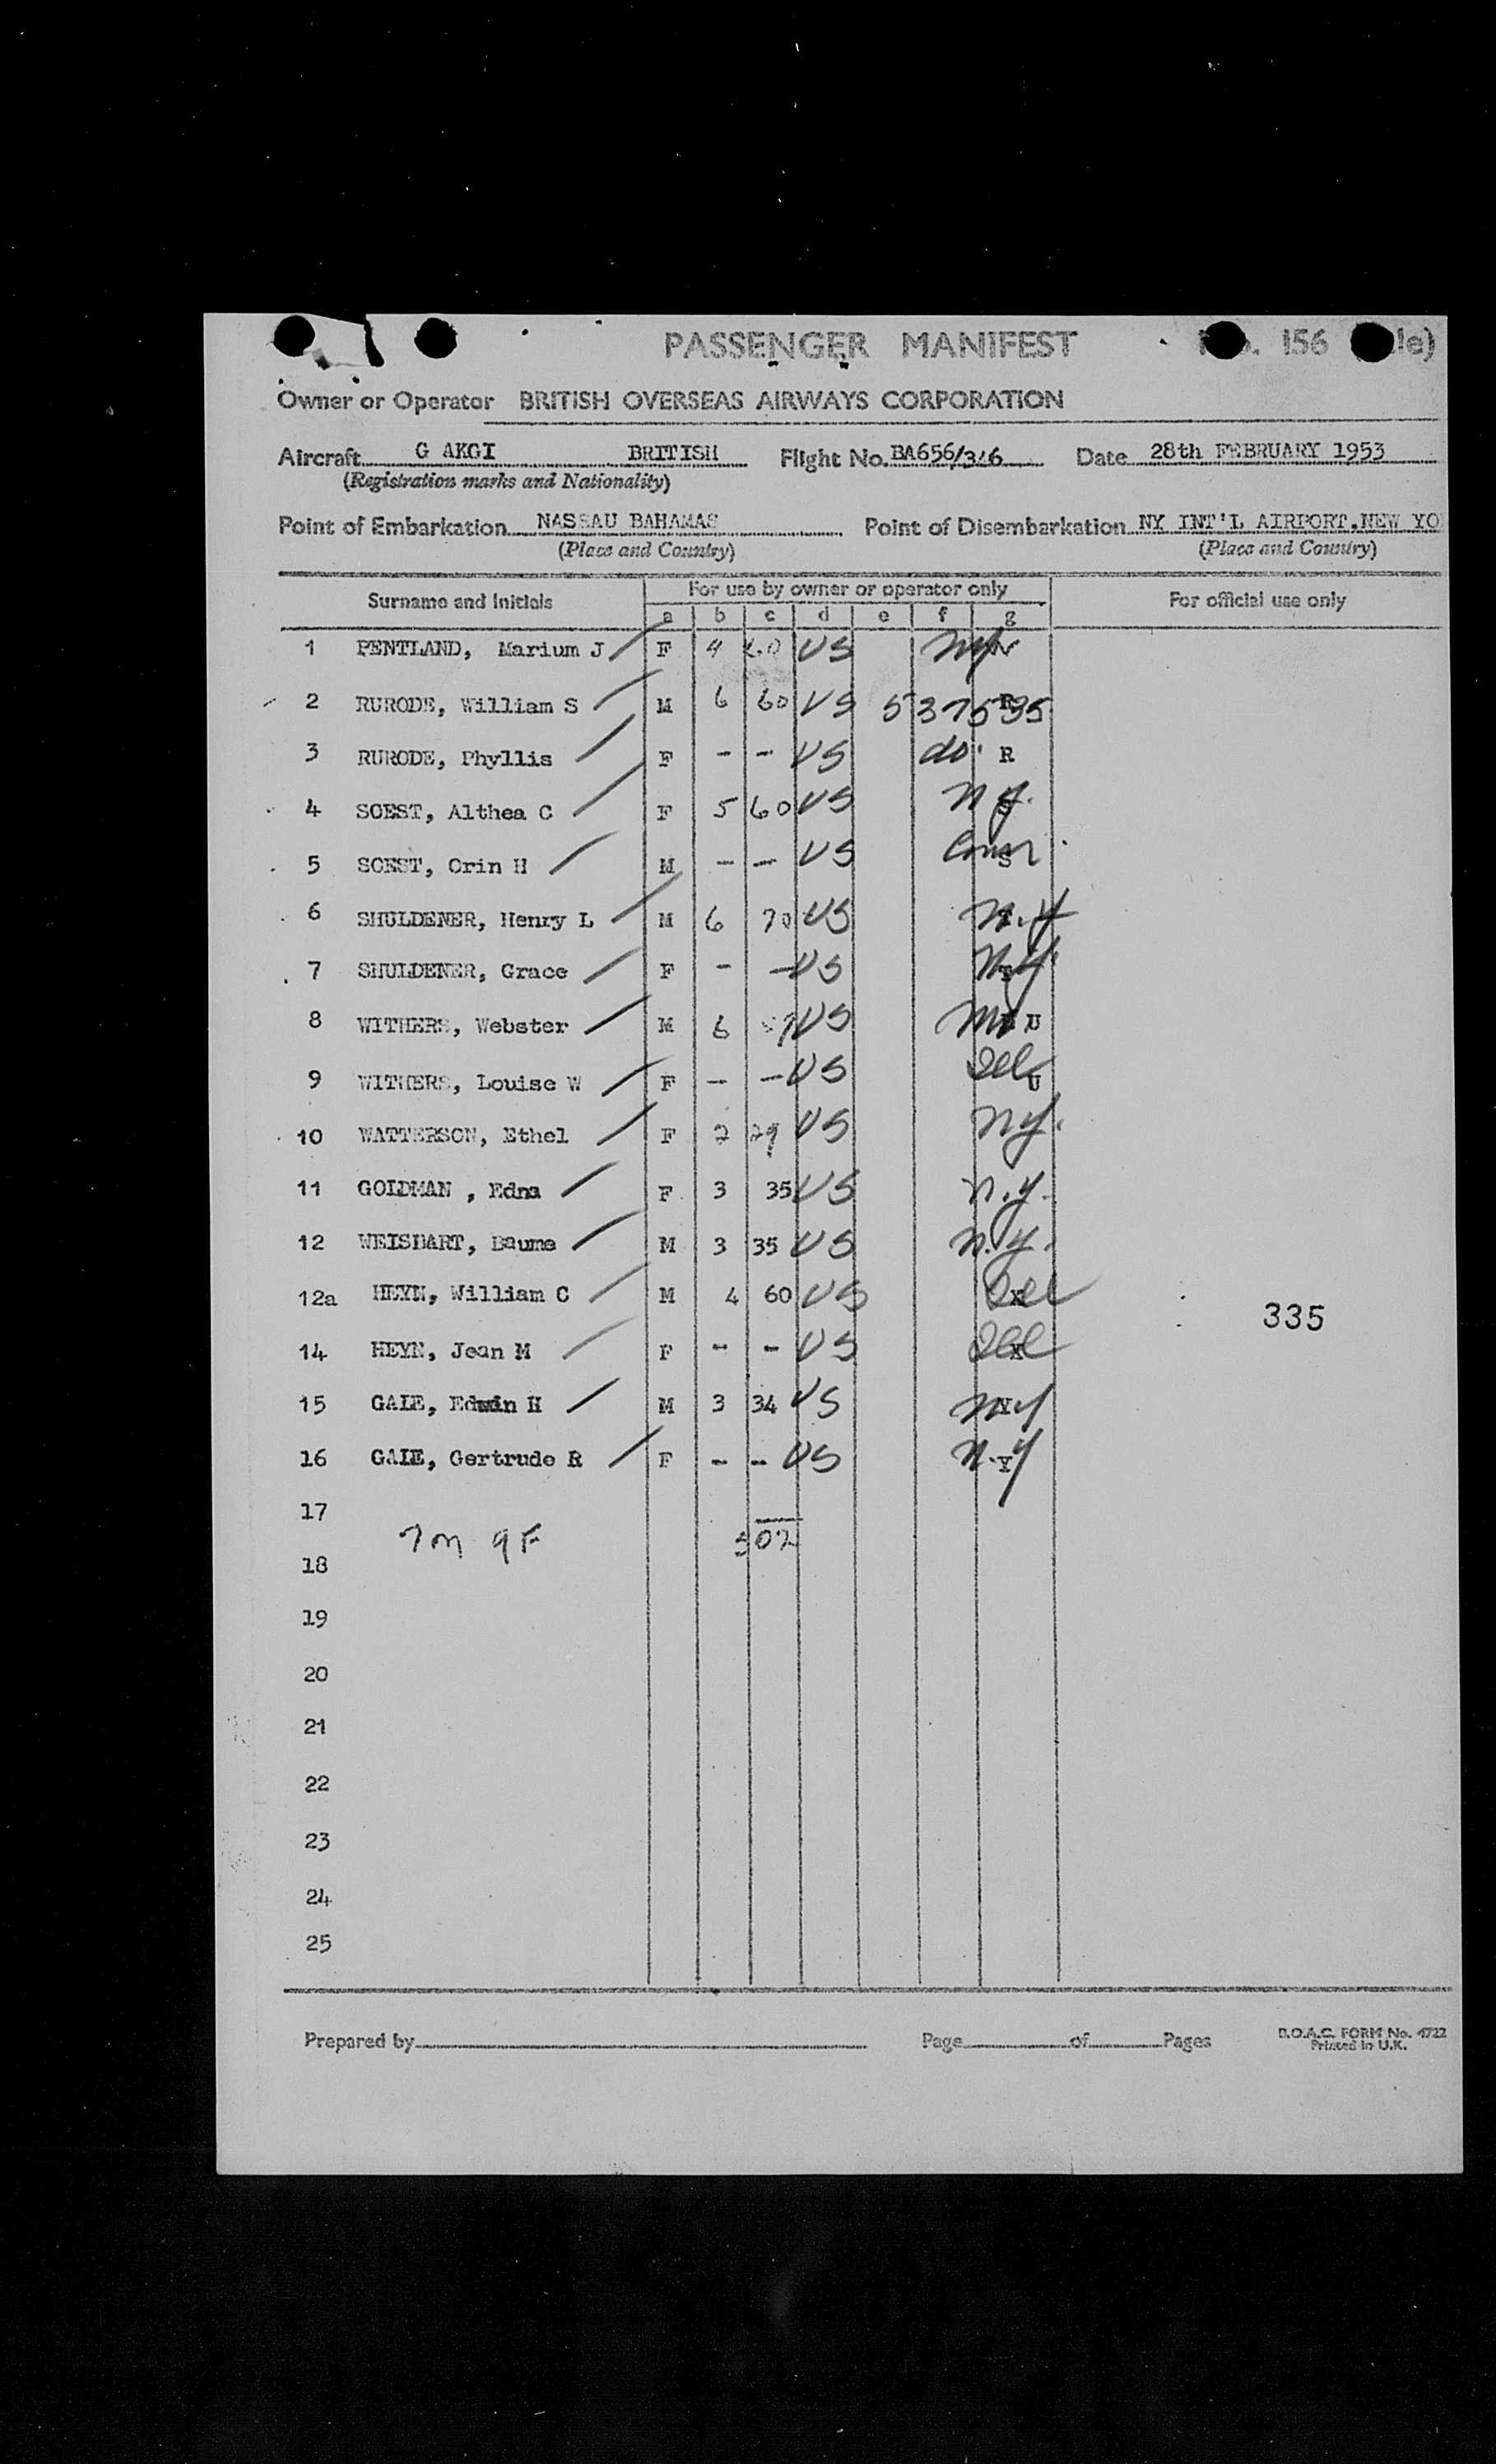 PASSENGER MANIFEST 156
Owner or Operator BRITISH OVERSEAS AIRWAYS CORPORATION
Aircraft G AKGI BRITISH Flight No. BA656/346 Date 28th FEBRUARY 1953
(Registration marks and Nationality)
Point of Embarkation NASSAU BAHAMAS Point of Disembarkation NY INT'L AIRPORT.NEW YO
(Place and Country) (Place and Country)
Surname and Initials For use by owner or operator only For official use only
a b c d e f g
1 PENTLAND, Marium J F 4 US NY
2 RURODE, William S M 6 60 US 537595 R
3 RURODE, Phyllis F - - US do R
4 SOEST, Althea C F 5 60 US NY. S
5 SOEST, Orin H M - - US Conn S
6 SHULDENER, Henry L M 6 70 US N.Y
7 SHULDENER, Grace F - - US N.Y
8 WITHERS, Webster M 6 US U
9 WITHERS, Louise W F - - US Del U
10 WATTERSON, Ethel F 2 29 US NY.
11 GOLDMAN , Edna F 3 35 US N.Y.
12 WEISBART, Baume M 3 35 US N.Y.
12a HEYN, William C M 4 60 US Del X
14 HEYN, Jean M F - - US Del X
15 GALE, Edwin H M 3 34 US NY
16 GALE, Gertrude R F - - US N.Y Y
335
17
7M 9F 502
18
19
20
21
22
23
24
25
Prepared by Page of Pages B.O.A.C. FORM No. 4722
Printed in U.K.